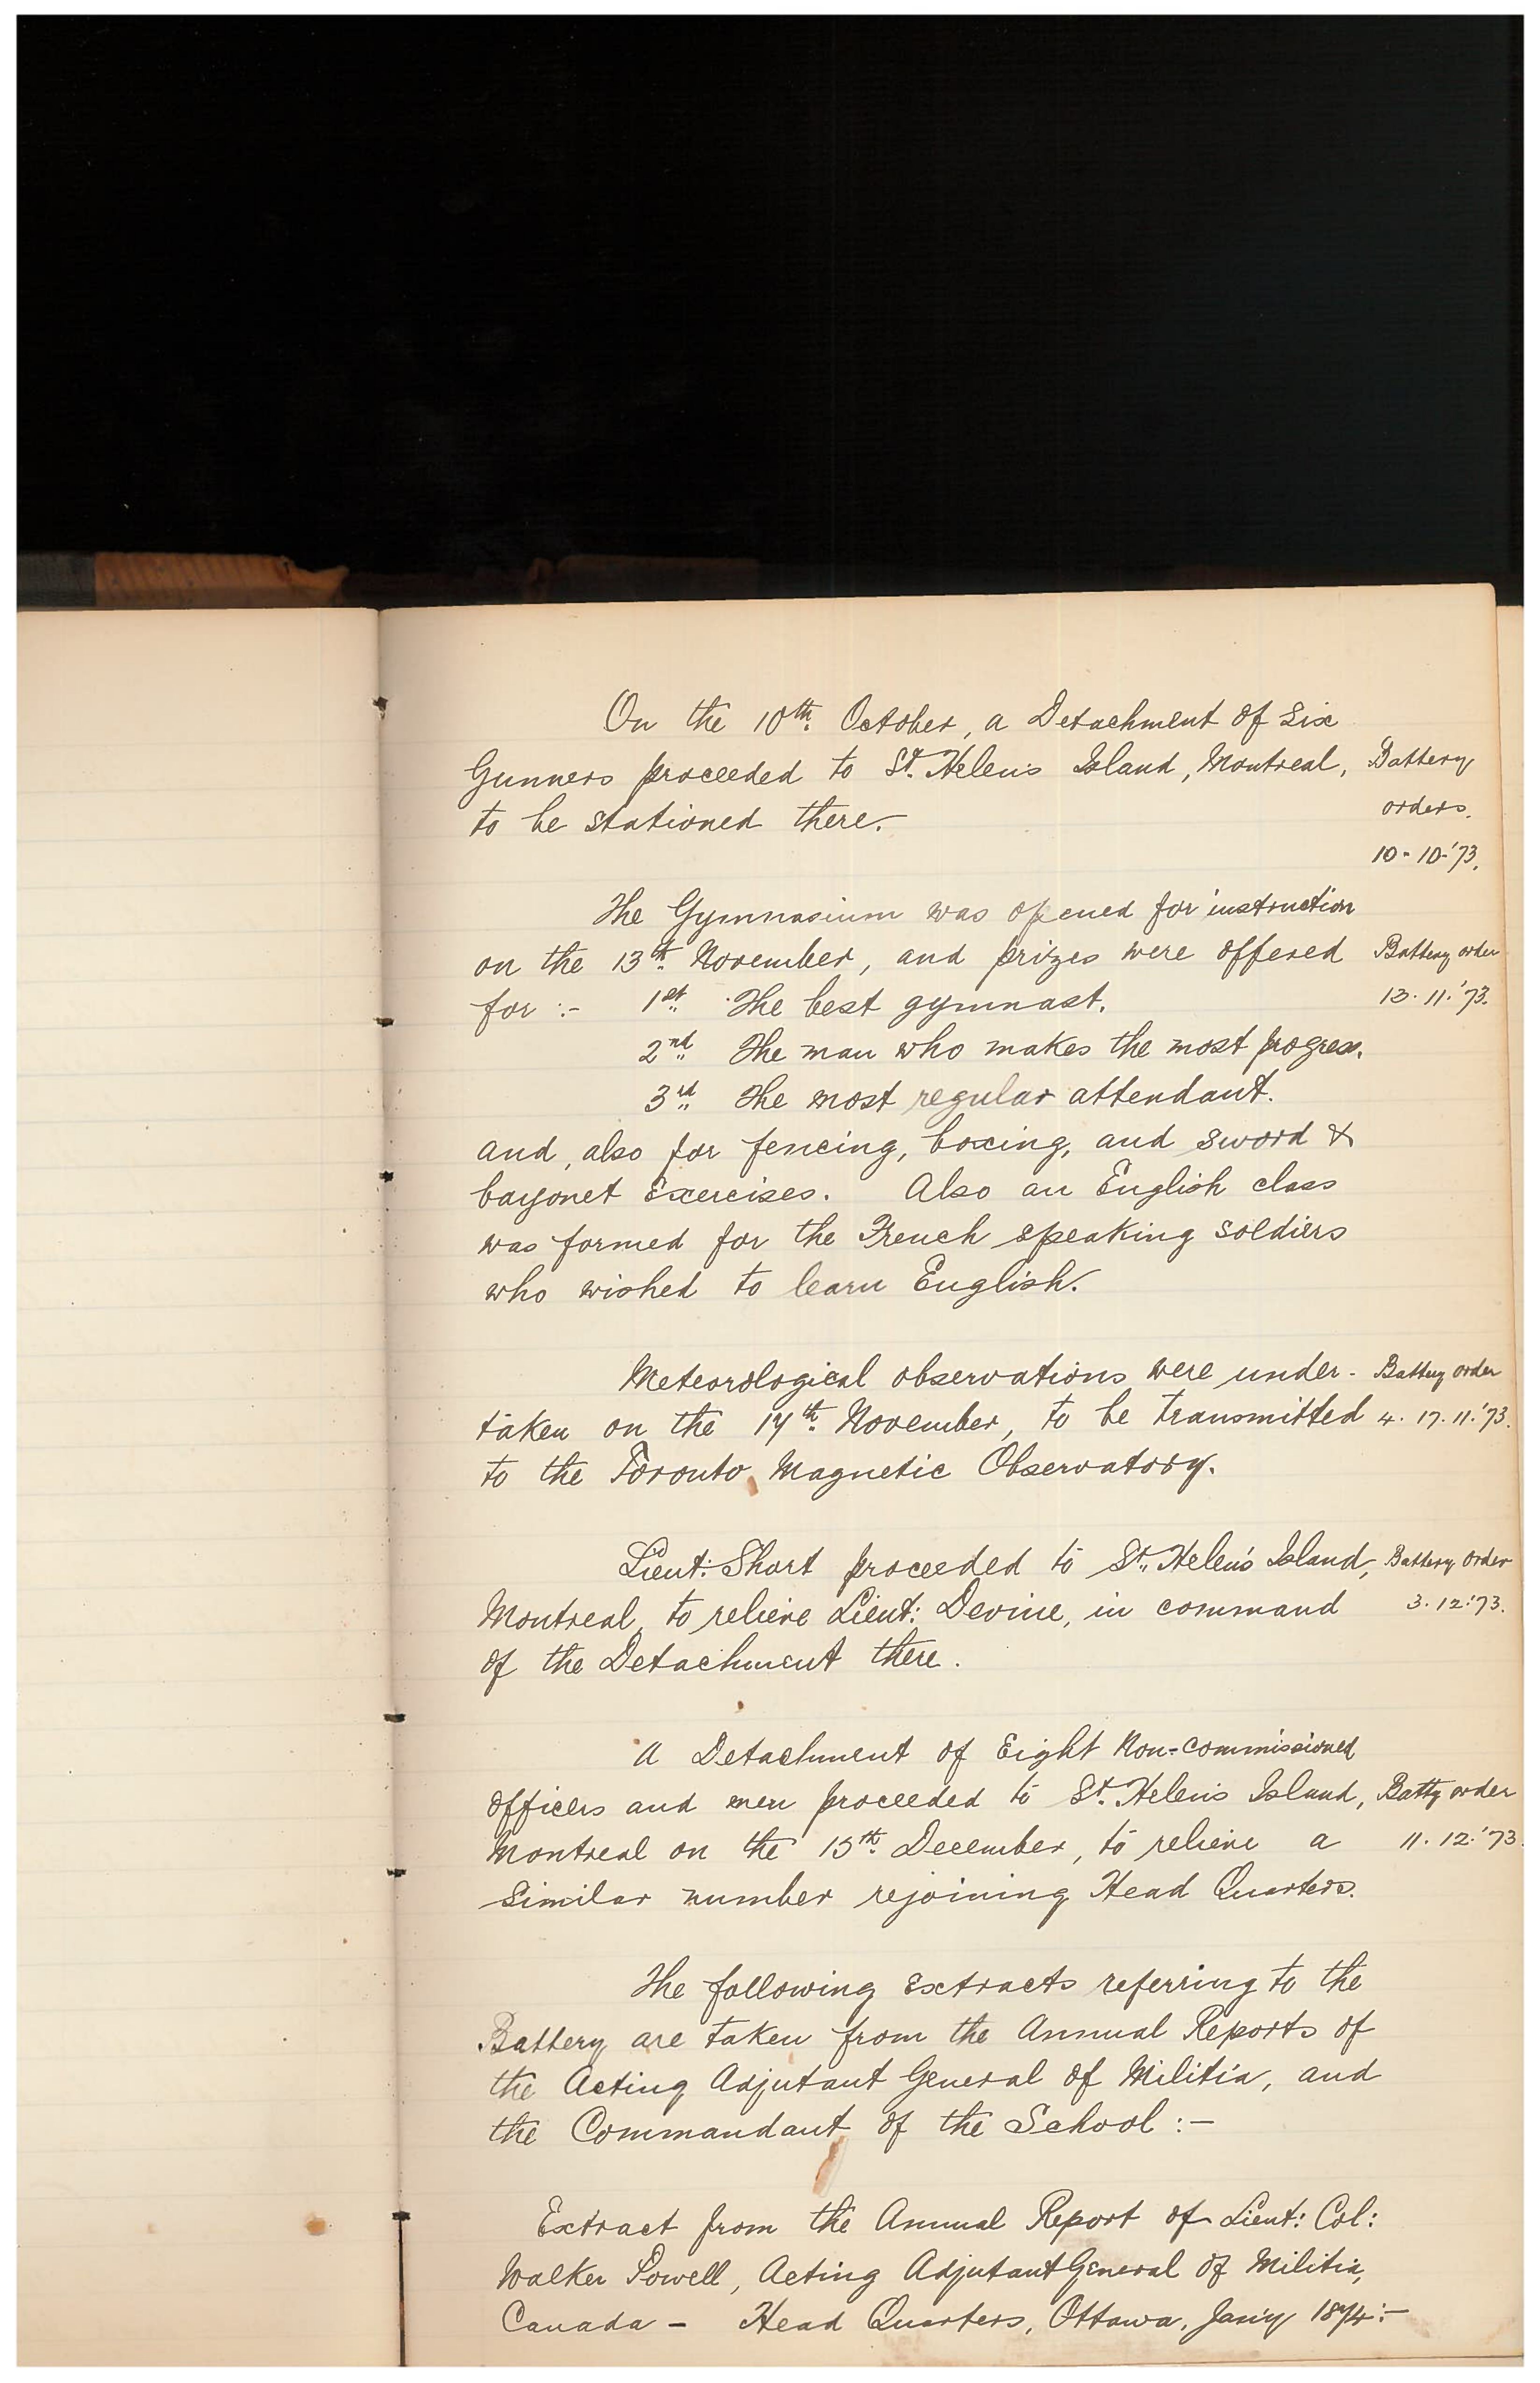 On the 10th. October, a Detachment of Six
Gunners proceeded to St. Helen's Island, Montreal, Battery
to be stationed there. orders.
10-10-'73.
The Gymnasium was opened for instruction
on the 13th. November, and prizes were offered Battery order
for :- 1st. The best gymnast. 13.11.'73.
2nd. The man who makes the most progress.
3rd. The most regular attendant.
and, also for fencing, boxing, and sword &
bayonet Exercises. Also an English class
was formed for the French speaking soldiers
who wished to learn English.
Meteorological observations were under- Battery order
taken on the 17th. November, to be transmitted 4. 17.11.'73.
to the Toronto Magnetic Observatory.
Lieut: Short proceeded to St. Helen's Island, Battery order
Montreal, to relieve Lieut: Devine, in command 3.12.'73.
of the Detachment there.
A Detachment of Eight Non-commissioned
officers and men proceeded to St. Helen's Island, Batty order
Montreal on the 15th. December, to relieve a 11.12.'73
similar number rejoining Head Quarters.
The following Extracts referring to the
Battery are taken from the Annual Reports of
the Acting Adjutant General of Militia, and
the Commandant of the School :-
Extract from the Annual Report of Lieut: Col:
Walker Powell, Acting Adjutant General of Militia,
Canada - Head Quarters, Ottawa, Jan'y 1874:-